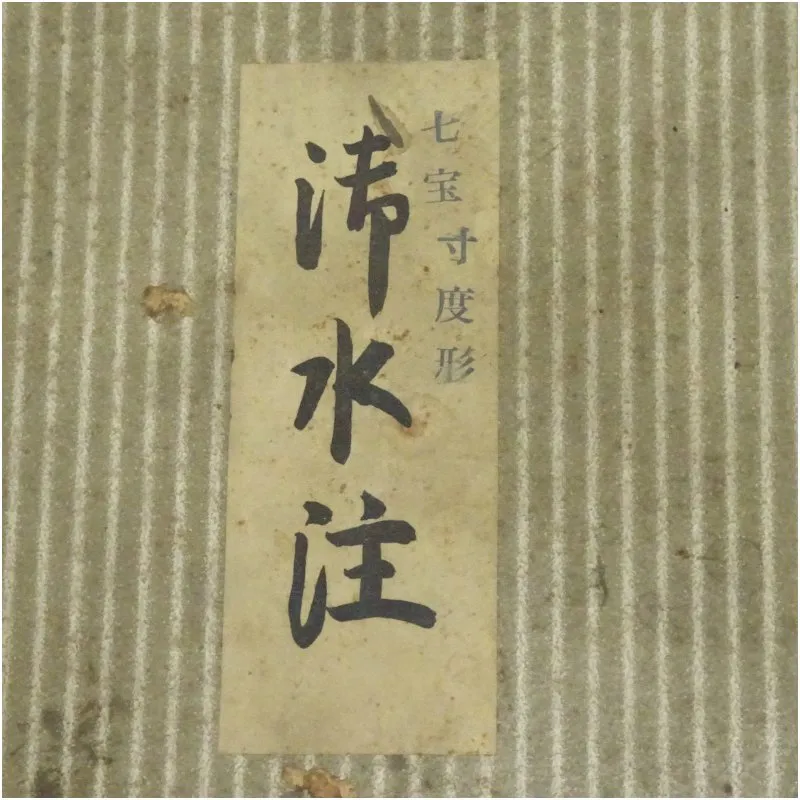 七宝寸度形
水注